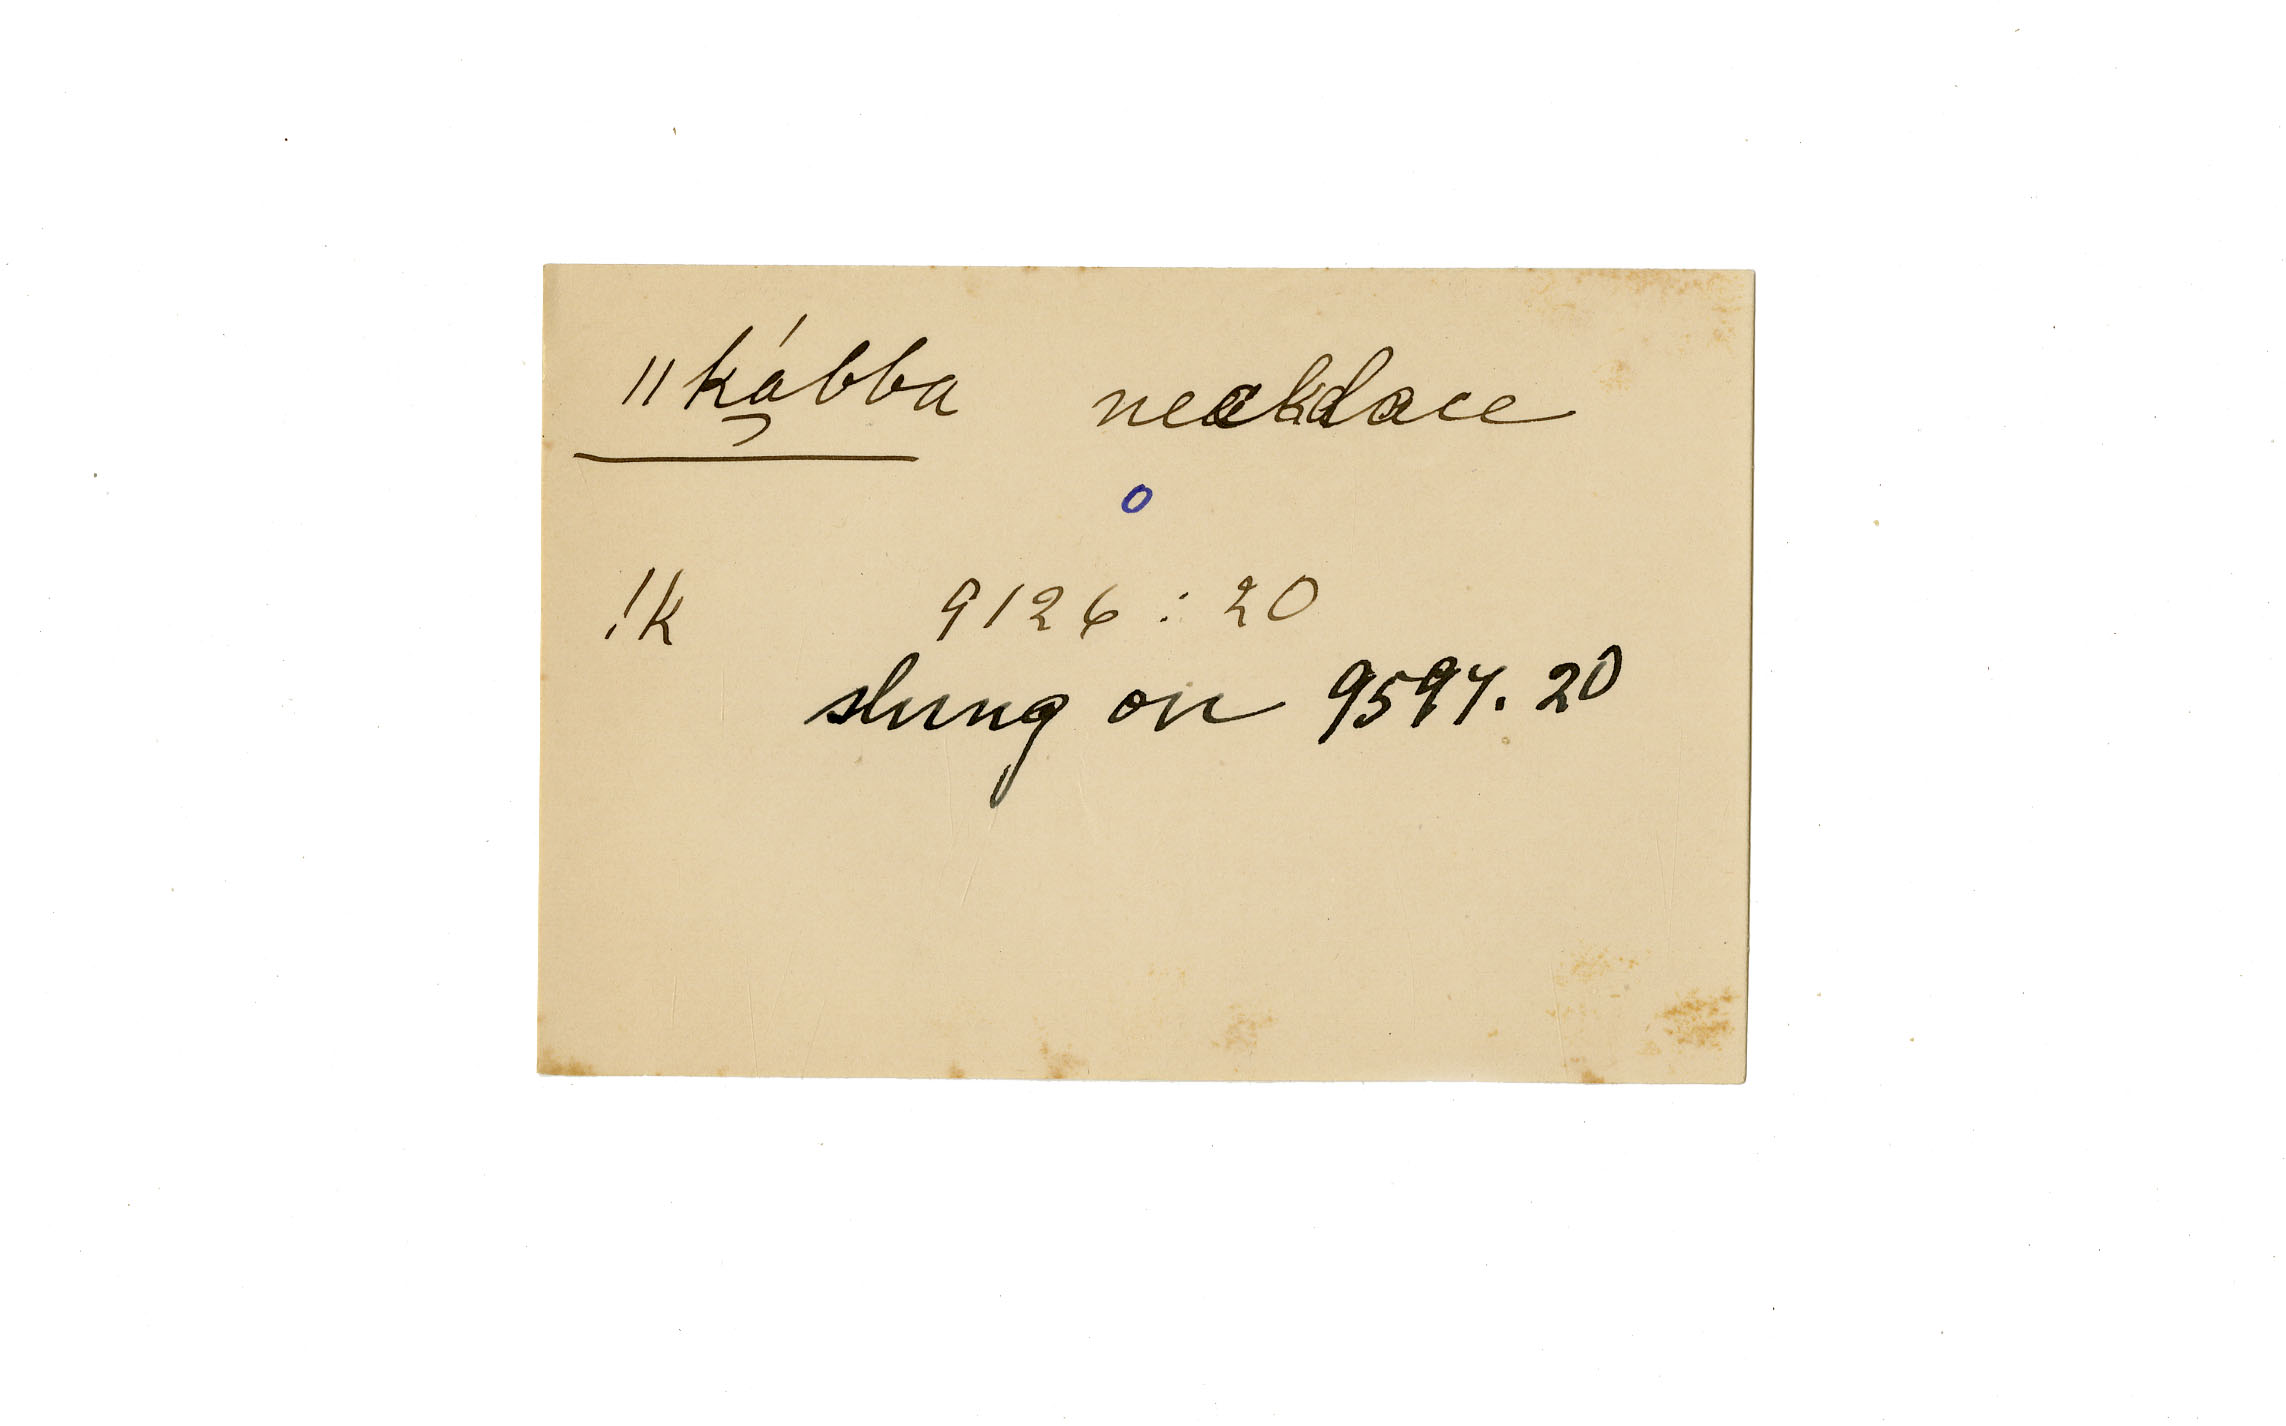 ǁká̡bba necklace
o
!k 9126 : 20
slung on 9594. 20